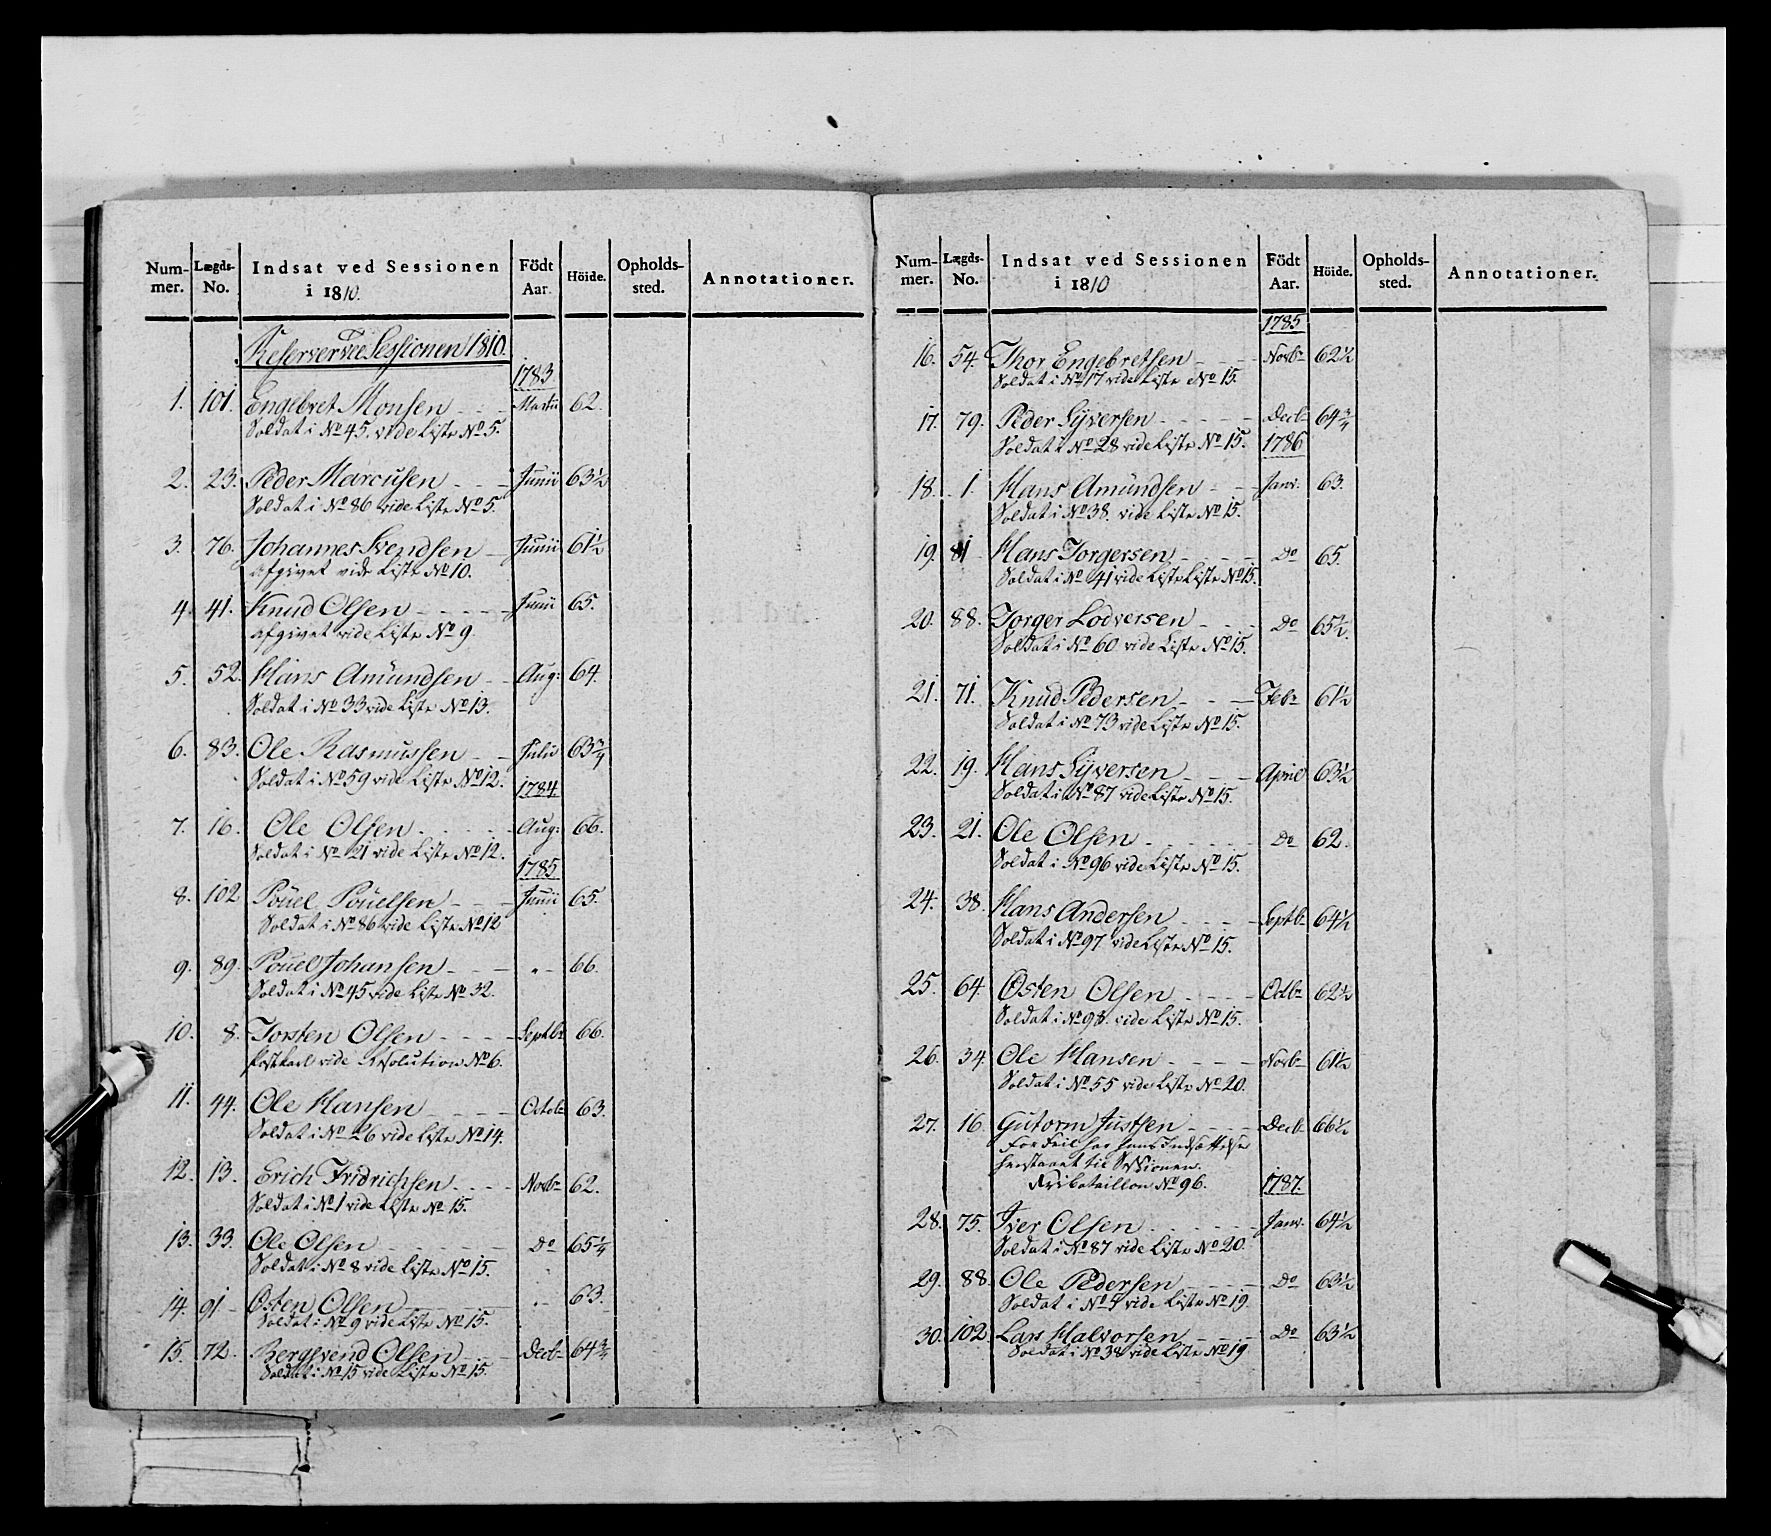 Num- Lægds- Indsat ved Sessionen Födt Höide. Opholds- Annotationer.
mer. No. i 1810. Aar. sted.
Reserver ved Sessionen 1810.
1783
1. 101. Engebret Monsen Martii 62.
Soldat i No 45. vide Liste No 5.
2. 23. Peder Marcusen Junii 63 1/2
Soldat i No 86 vide Liste No 5.
3. 76. Johannes Svendsen Junii 61 1/2
afgivet vide Liste No 10.
4. 41. Knud Olsen Junii 65.
afgivet vide Liste No 9.
5. 52. Hans Amundsen Aug: 64.
Soldat i No 33 vide Liste No 13.
6. 83. Ole Rasmussen Julii 63 3/4
Soldat i No 59 vide Liste No 12. 1784.
7. 16. Ole Olsen Aug: 66.
Soldat i No 21 vide Liste No 12.
1785.
8. 102 Pouel Pouelsen Junii 65.
Soldat i No 86 vide Liste No 12
9. 89. Pouel Johansen „ 66.
Soldat i No 45 vide Liste No 32.
10. 8. Torsten Olsen Septbr 66.
Postkarl vide Resolution No 6.
11. 44. Ole Hansen Octobr 63.
Soldat i No 26 vide Liste No 14.
12. 13. Erich Fridrichsen Novbr 62.
Soldat i No 1 vide Liste No 15.
13. 33. Ole Olsen Do 65 1/4
Soldat i No 8 vide Liste No 15.
14. 91 Østen Olsen „ 63.
Soldat i No 9 vide Liste No 15.
15. 72. Bergsvend Olsen Decbr 64 3/4
Soldat i No 15 vide Liste No 15.
Num- Lægds- Indsat ved Sessionen Födt Höide. Opholds- Annotationer.
mer. No. i 1810 Aar. sted.
1785
16. 54. Thor Engebretsen Novbr 62 1/2
Soldat i No 17 vide Liste No 15.
17. 79. Peder Syversen Decbr 64 3/4
Soldat i No 28 vide Liste No 15. 1786
18. 1. Hans Amundsen Janr. 63.
Soldat i No 38. vide Liste No 15.
19. 81 Hans Jorgersen Do 65.
Soldat i No 41 vide Liste Liste No 15.
20. 88. Jorger Lodversen Do 65 1/2.
Soldat i No 60 vide Liste No 15.
21. 71. Knud Pedersen Febr 61 1/2
Soldat i No 73 vide Liste No 15.
22. 19. Hans Syversen April 63 1/2
Soldat i No 87 vide Liste No 15.
23. 21. Ole Olsen Do 62.
Soldat i No 96 vide Liste No 15.
24. 38. Hans Andersen Septbr 64 1/2
Soldat i No 97 vide Liste No 15.
25. 64 Østen Olsen Octbr 62 1/2
Soldat i No 98. vide Liste No 15.
26. 34. Ole Hansen Novbr 61 1/2
Soldat i No 55 vide Liste No 20.
27. 16. Gutorm Justsen Decbr 66 1/2
For Feil har hans Indsættelse
henstaaet til Sessionen.
Fribataillon No 96. 1787.
28. 75. Iver Olsen Janr. 64 1/2
Soldat i No 87 vide Liste No 20.
29. 88. Ole Pedersen Do 63 1/2
Soldat i No 4 vide Liste No 19.
30. 102. Lars Halvorsen Do 63 1/2
Soldat i No 38 vide Liste No 19